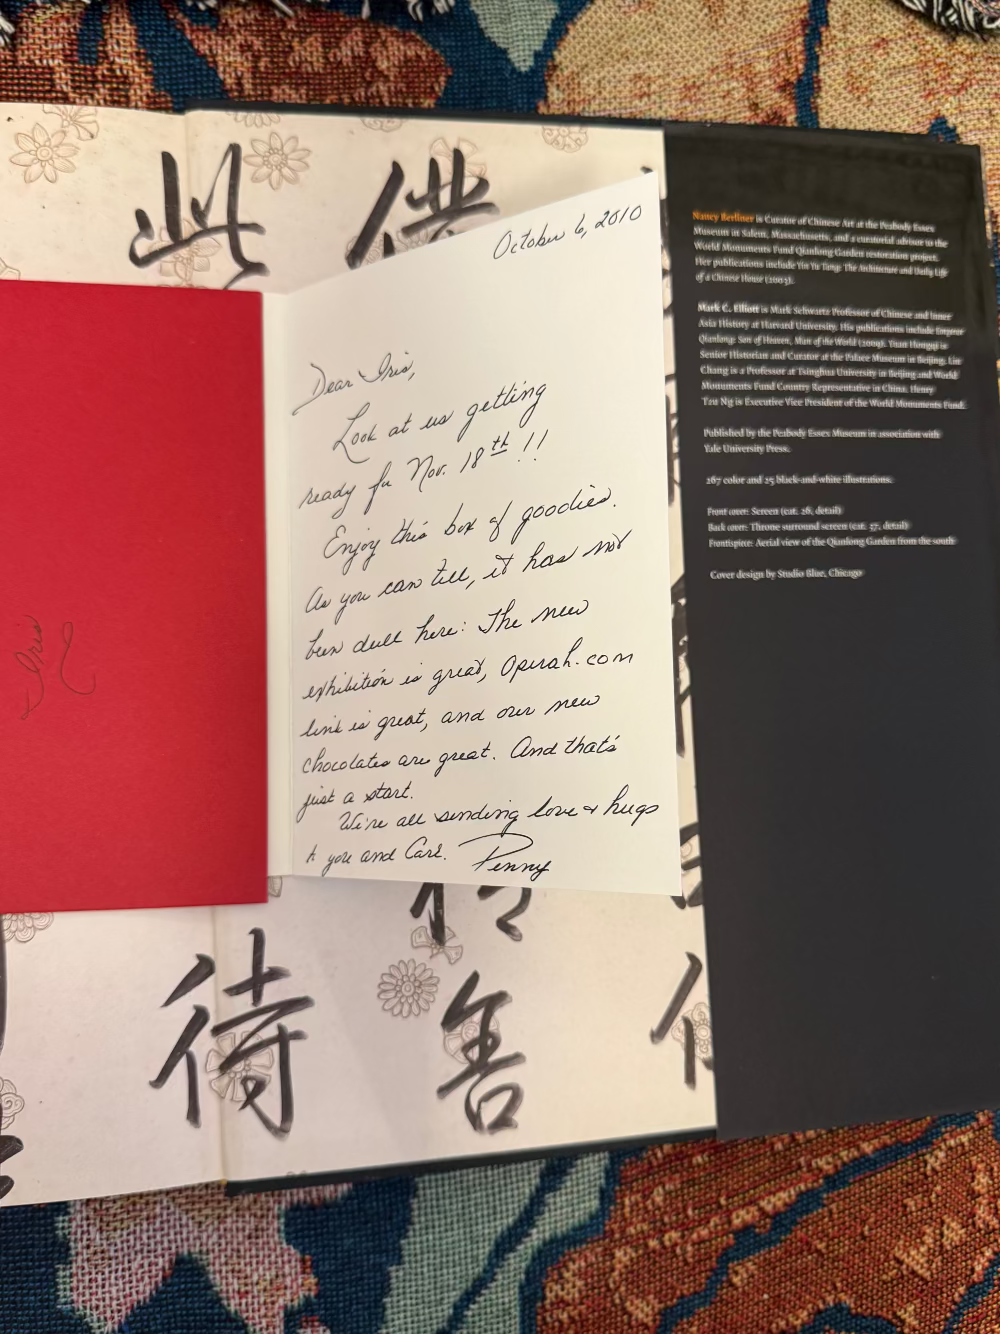 此
供
Iris
October 6, 2010
Dear Iris,
Look at us getting
ready for Nov. 18th !!
Enjoy this box of goodies.
As you can tell, it has not
been dull here: The new
exhibition is great, Operah.com
link is great, and our new
chocolates are great. And that's
just a start.
We're all sending love & hugs
to you and Carl. Penny
待
善
Nancy Berliner is Curator of Chinese Art at the Peabody Essex
Museum in Salem, Massachusetts, and a curatorial advisor to the
World Monuments Fund Qianlong Garden restoration project.
Her publications include Yin Yu Tang: The Architecture and Daily Life
of a Chinese House (2003).
Mark C. Elliott is Mark Schwartz Professor of Chinese and Inner
Asia History at Harvard University. His publications include Emperor
Qianlong: Son of Heaven, Man of the World (2009). Yuan Hongqi is
Senior Historian and Curator at the Palace Museum in Beijing. Liu
Chang is a Professor at Tsinghua University in Beijing and World
Monuments Fund Country Representative in China. Henry
Tzu Ng is Executive Vice President of the World Monuments Fund.
Published by the Peabody Essex Museum in association with
Yale University Press.
267 color and 25 black-and-white illustrations.
Front cover: Screen (cat. 26, detail)
Back cover: Throne surround screen (cat. 57, detail)
Frontispiece: Aerial view of the Qianlong Garden from the south
Cover design by Studio Blue, Chicago